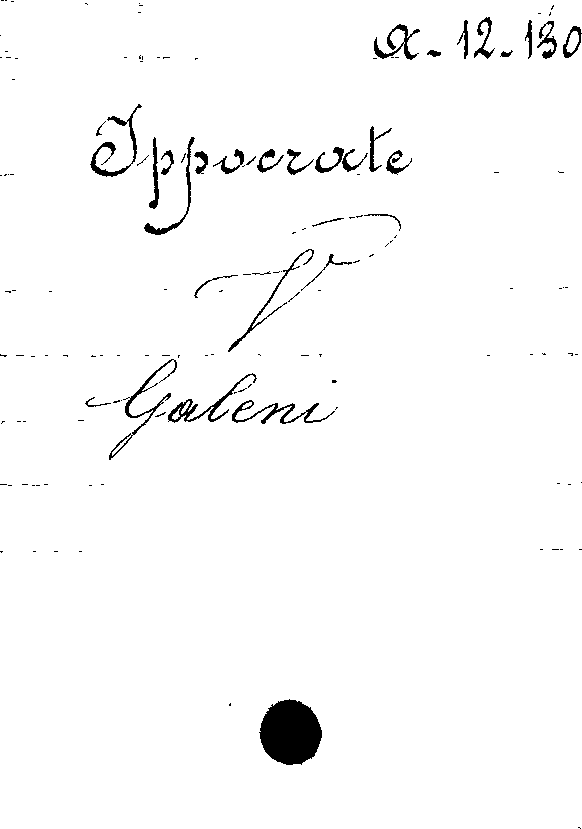 α-12-130
Ippocrate
V
Galeni